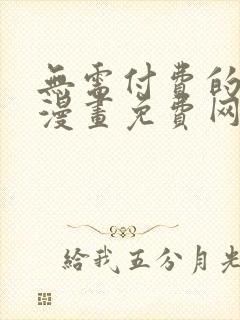 無需付費的
漫畫免費网
給我五分月光